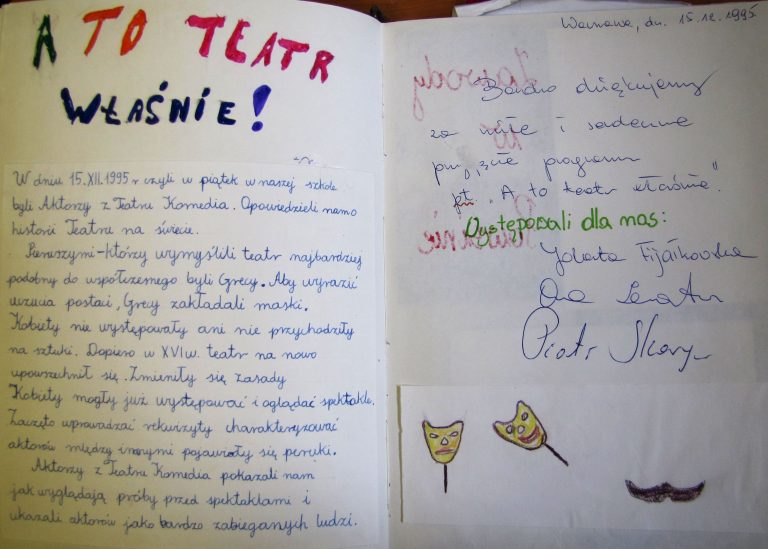 A TO TEATR
WŁAŚNIE!
W dniu 15.XII.1995 r czyli w piątek w naszej szkole
byli Aktorzy z Teatru Komedia. Opowiedzieli nam o
historii Teatru na świecie.
Pierwszymi - którzy wymyślili teatr najbardziej
podobny do współczesnego byli Grecy. Aby wyrazić
uczucia postaci, Grecy zakładali maski.
Kobiety nie występowały ani nie przychodziły
na sztuki. Dopiero w XVI w. teatr na nowo
upowszechnił się. Zmieniły się zasady
Kobiety mogły już występować i oglądać spektakle.
Zaczęto wprowadzać rekwizyty charakteryzować
aktorów między innymi pojawiły się peruki.
Aktorzy z Teatru Komedia pokazali nam
jak wyglądają próby przed spektaklami i
ukazali aktorów jako bardzo zabieganych ludzi.
Warszawa, dn. 15.12.1995
Bardzo dziękujemy
za miłe i serdeczne
przyjęcie programu
pt. "A to teatr właśnie".
Występowali dla nas:
Jolanta Fijałkowska
Piotr